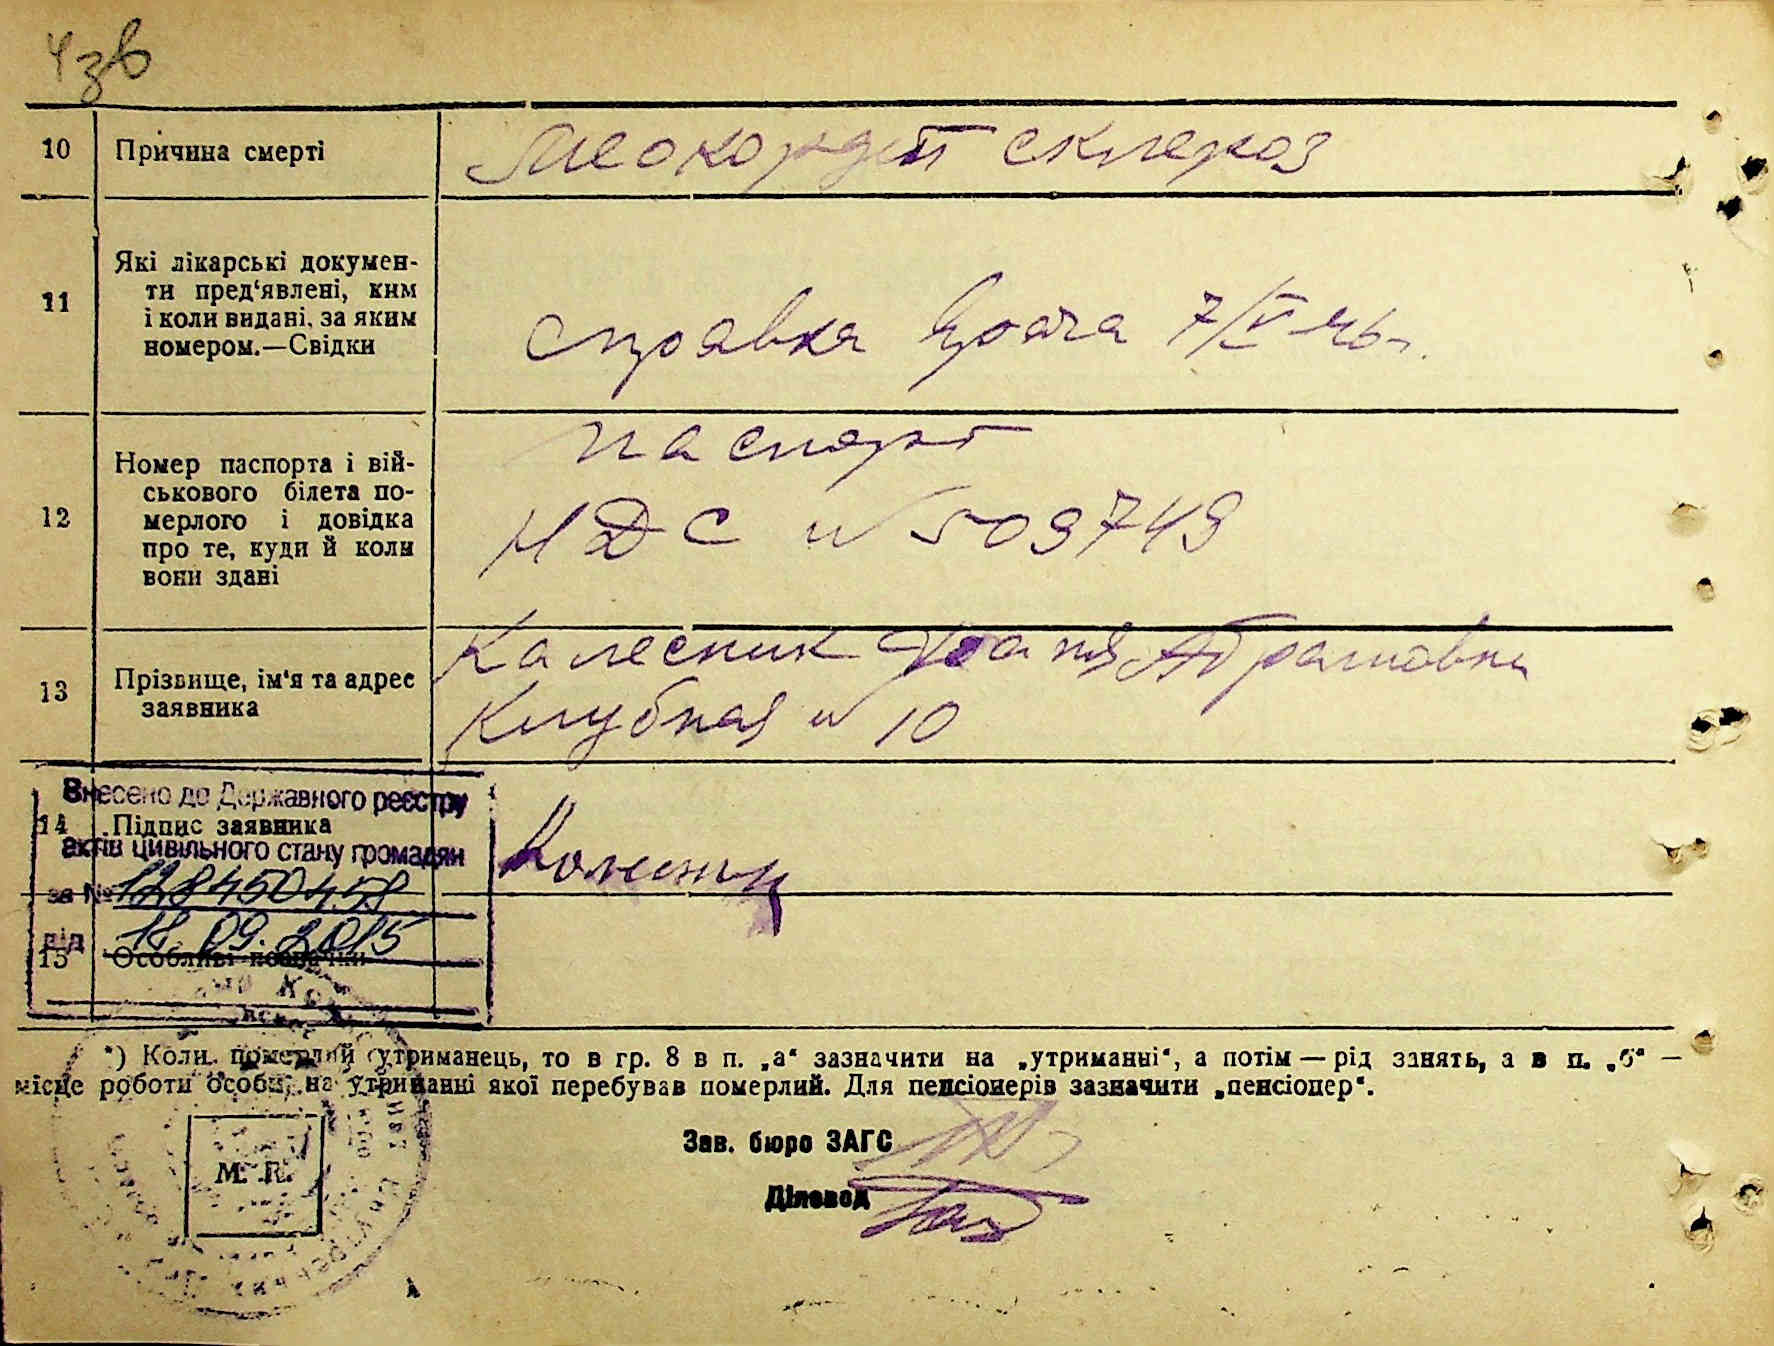 10 Причина смерті Меокордит склероз
11 Які лікарські докумен-
ти пред'явлені, ким
і коли видані, за яким
номером.—Свідки
справка врача 7/V-46г.
12 Номер паспорта і вій-
ськового білета по-
мерлого і довідка
про те, куди й коли
вони здані
паспорт
МДС № 509749
13 Прізвище, ім'я та адрес
заявника
Калесник Абрамовна
Клубная № 10
Внесено до Державного реєстру
14 Підпис заявника
актів цивільного стану громадян
за № 128450458
від 18.09.2015
15 Особливі позначки
*) Коли померлий утриманець, то в гр. 8 в п. „а“ зазначити на „утриманні“, а потім — рід занять, а в п. „б“ —
місце роботи особи, на утриманні якої перебував померлий. Для пенсіонерів зазначити „пенсіонер“.
Зав. бюро ЗАГС
Діловод
М. П.